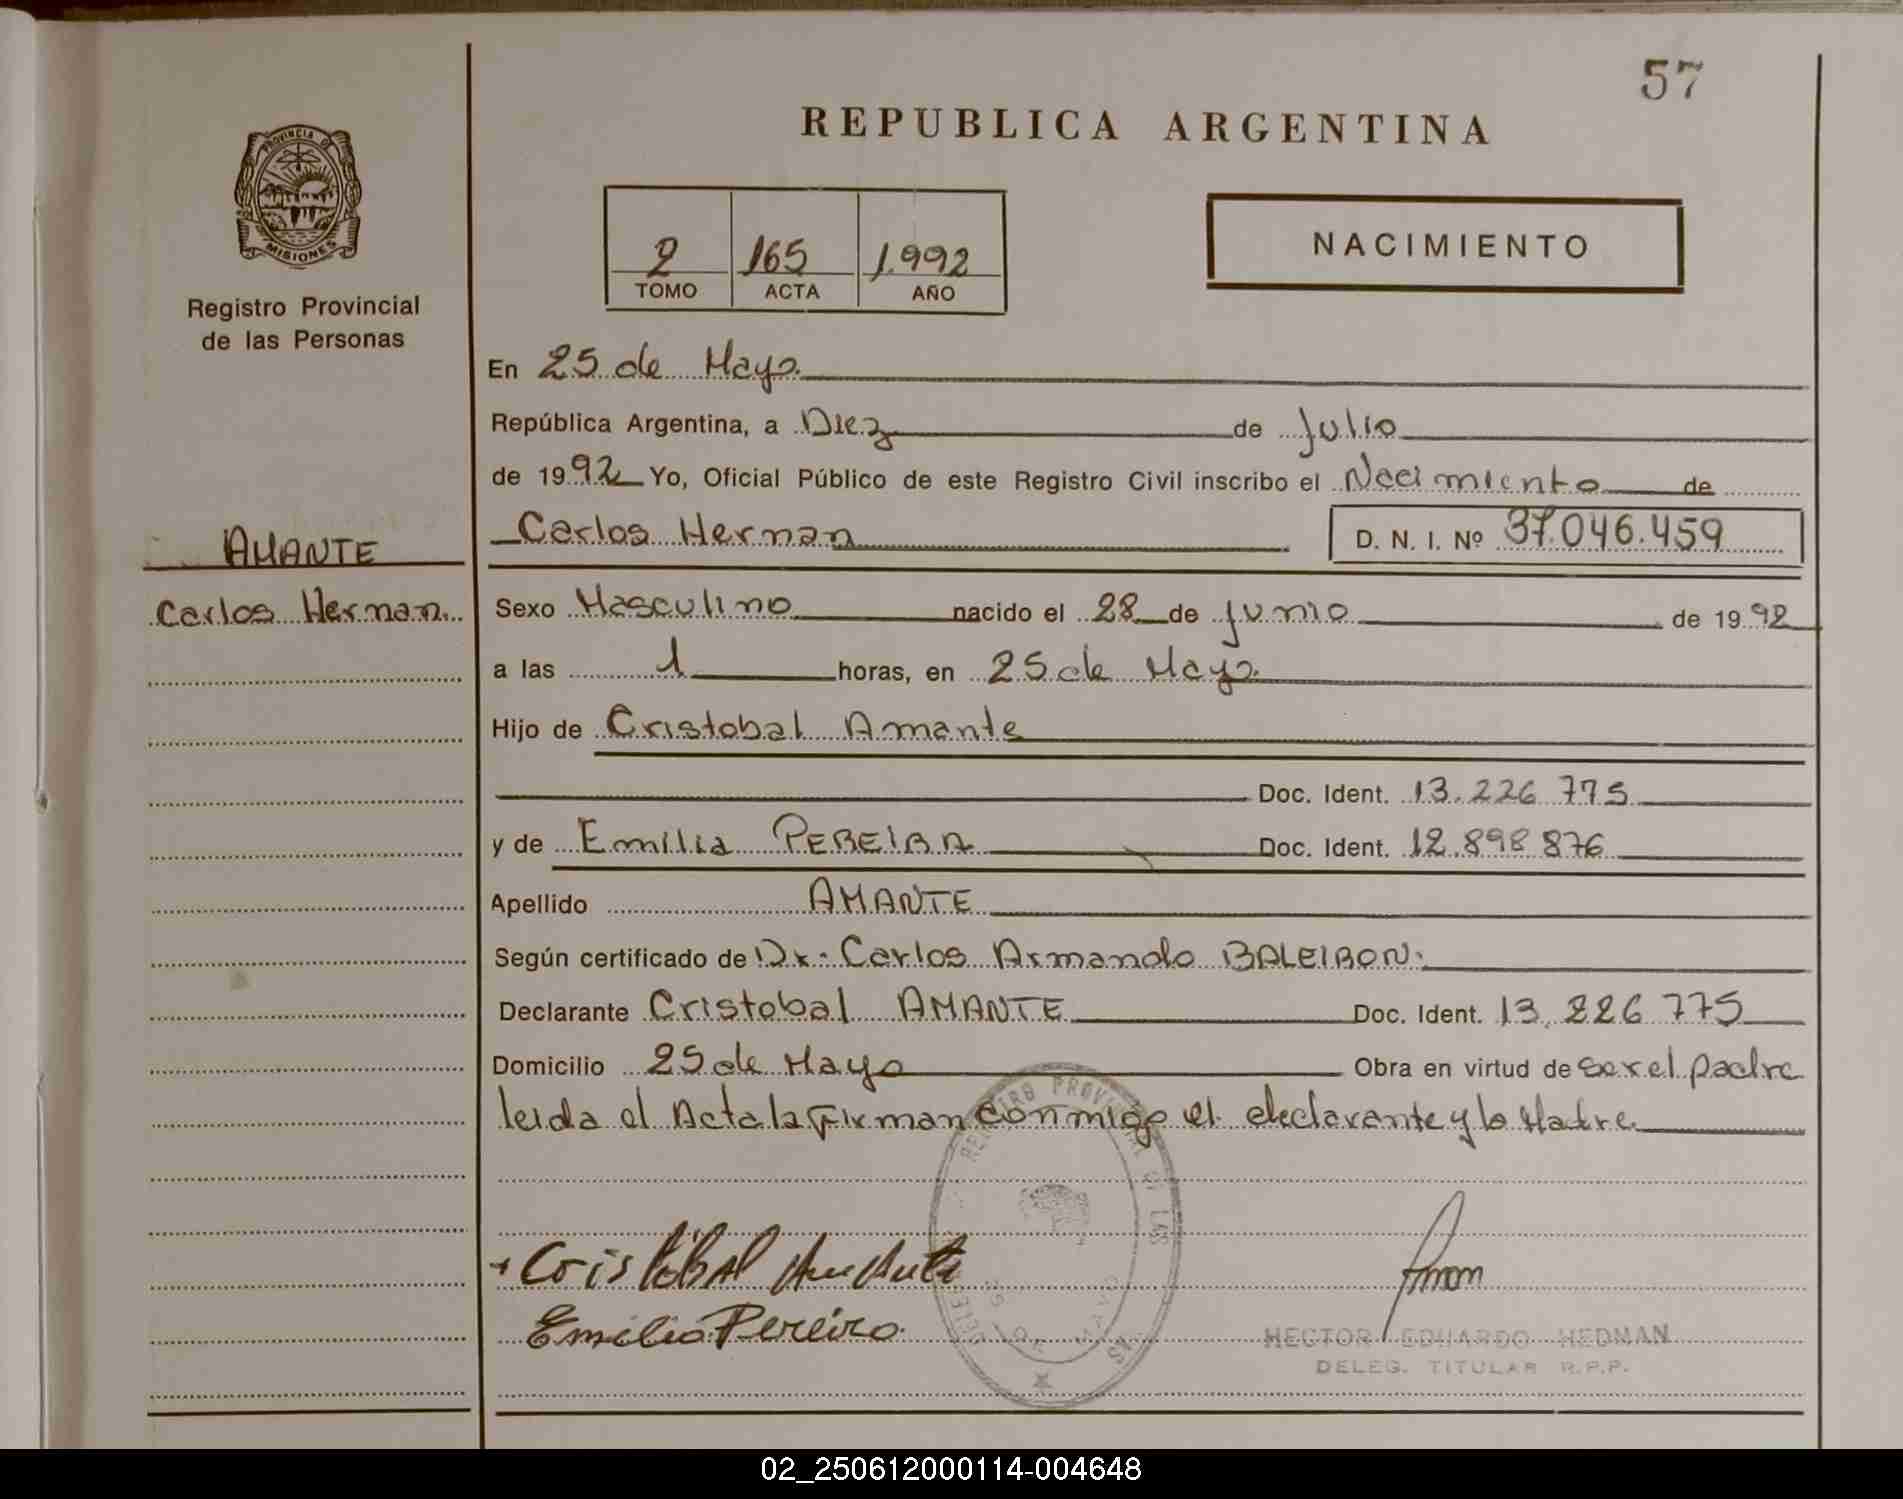 57
REPUBLICA ARGENTINA
PROVINCIA DE
MISIONES
Registro Provincial
de las Personas
2 165 1.992
TOMO ACTA AÑO
NACIMIENTO
En 25 de Mayo
República Argentina, a Diez de Julio
de 1992 Yo, Oficial Público de este Registro Civil inscribo el Nacimiento de
Carlos Hernan D. N. I. Nº 37.046.459
AMANTE
Carlos Hernan
Sexo Masculino nacido el 28 de junio de 1992
a las 1 horas, en 25 de Mayo
Hijo de Cristobal Amante
Doc. Ident. 13.226 775
y de Emilia PEREIRA Doc. Ident. 12.898 876
Apellido AMANTE
Según certificado de Dr. Carlos Armando BALEIRON.
Declarante Cristobal AMANTE Doc. Ident. 13.226 775
Domicilio 25 de Mayo Obra en virtud de ser el padre
leida el Acta la Firman conmigo el declarante y la Madre
REGISTRO PROVINCIAL DE LAS
25 DE MAYO
Cristóbal Amante
Emilia Pereira
HECTOR EDUARDO HEDMAN
DELEG. TITULAR R.P.P.
02_250612000114-004648